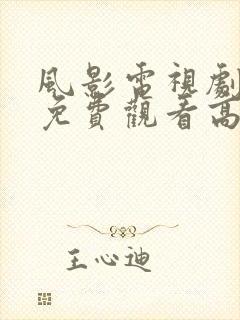 風影雷視劇
免費觀看高
王心迪